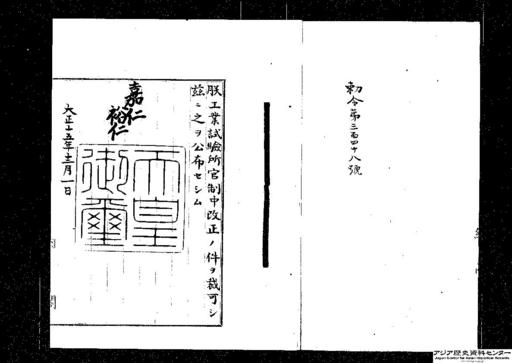 勅令第三百四十八號
朕工業試驗所官制中改正ノ件ヲ裁可シ
茲ニ之ヲ公布セシム
嘉仁
裕仁
天皇
御璽
大正十五年十二月一日
内閣
アジア歴史資料センター
Japan Center for Asian Historical Records